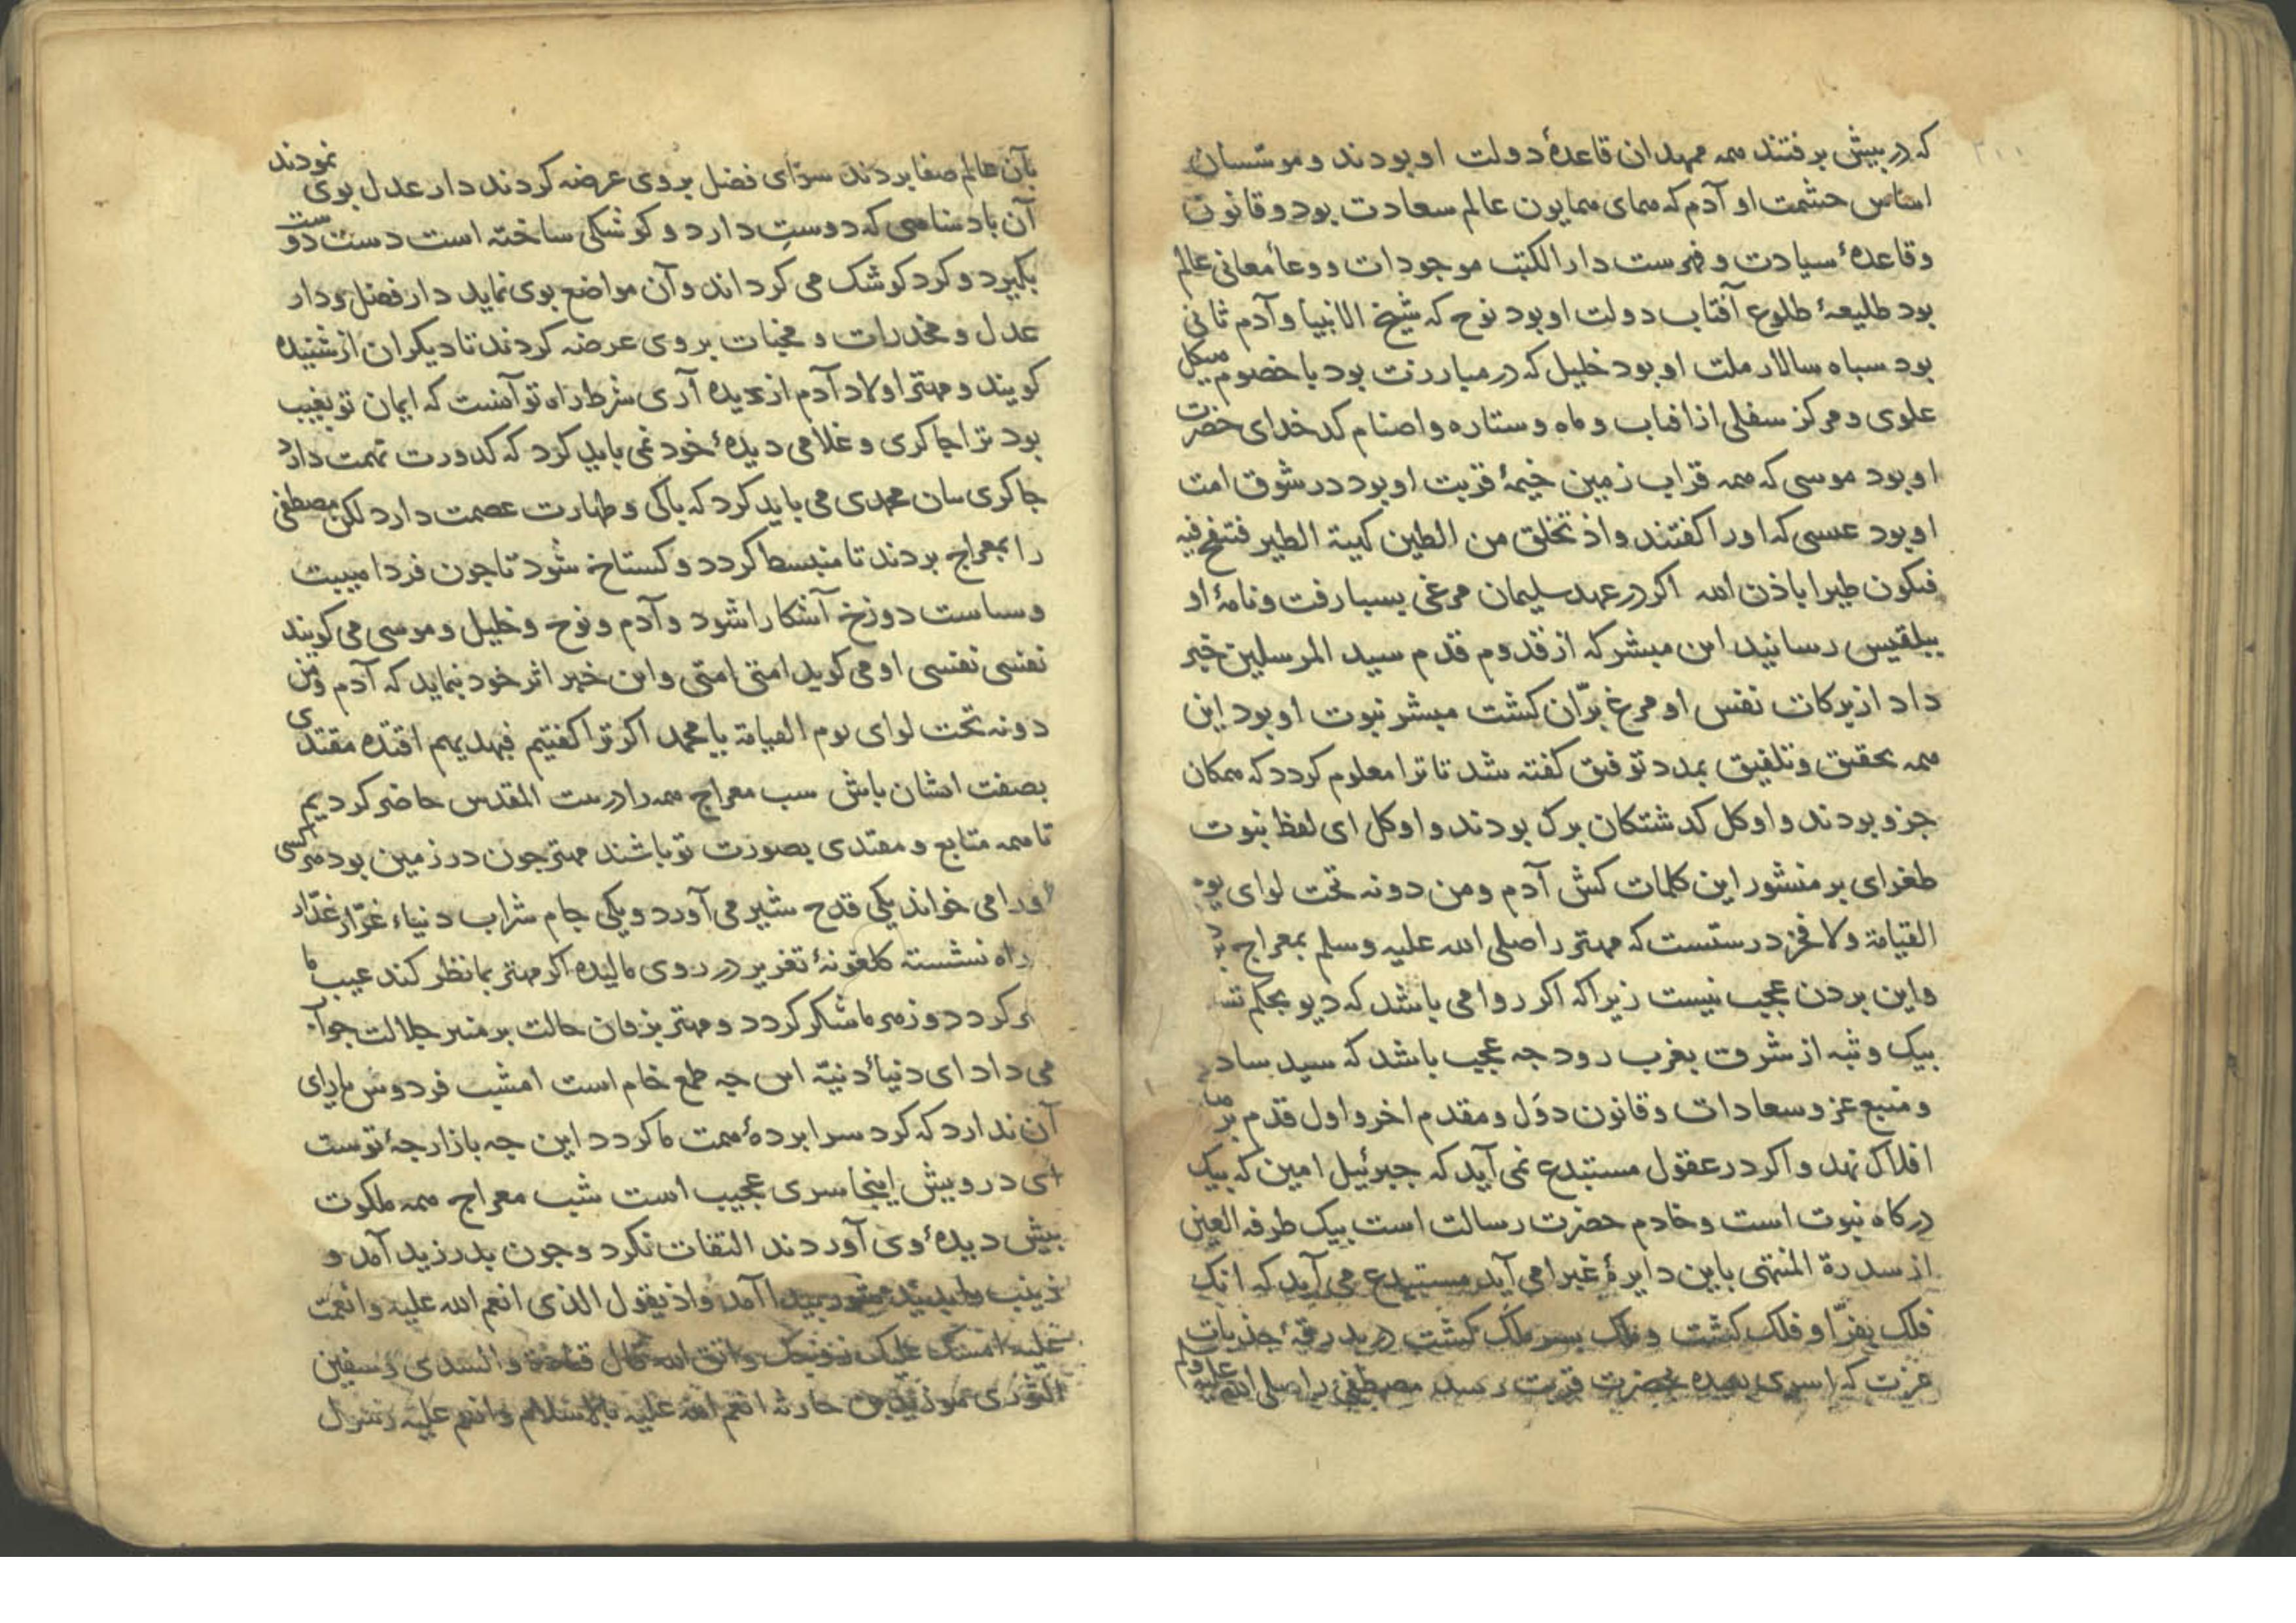 که در پیش برفتند همه ممهدان قاعدهٔ دولت او بودند و موسسان
اساس حشمت او آدم که همای همایون عالم سعادت بود و قانون
وقاعدهٔ سیادت و فهرست دار الکتب موجودات و وعأ معانی عالم
بود طلیعهٔ طلوع آفتاب دولت او بود نوح که شیخ الانبیا و آدم ثانی
بود سباه سالار ملت او بود خلیل که در مبارزت بود با خصوم هیکل
علوی و مرکز سفلی از افتاب و ماه و ستاره و اصنام کدخدای حضرت
او بود موسی که همه قراب زمین خیمهٔ قربت او بود در شوق امت
او بود عیسی که او را کفتند واذ تخلق من الطین کهیئة الطیر فتنفخ فیه
فیکون طیرا باذن الله اکر در عهد سلیمان مرغی بسبا رفت و نامهٔ او
ببلقیس رسانید این مبشر که از قدوم قدم سید المرسلین خبر
داد از برکات نفس او مرغ برّان کشت مبشر نبوت او بود این
همه تحقیق و تلفیق بمدد توفیق کفته شد تا ترا معلوم کردد که همکان
جزو بودند و او کل کدشتکان برک بودند و او کل ای لفظ نبوت
طغرای بر منشور این کلمات کش آدم ومن دونه تحت لوای یوم
القیامة ولا فخر درستست که مهتر را صلی الله علیه وسلم بمعراج
واین بردن عجب نیست زیرا که اکر روا می باشد که دیو بحکم
بیک وثبه از شرق بغرب رود چه عجب باشد که سید سادات
و منبع عز و سعادات و قانون دوَل و مقدم اخر و اول قدم بر
افلاک نهد و اکر در عقول مستبدع نمی آید که جبرئیل امین که بیک
درکاه نبوت است و خادم حضرت رسالت است بیک طرفه العین
از سدرة المنتهی باین دایرهٔ غبرا می آید مستبدع می آید که انک
فلک بفرّ او فلک کشت و ملک بسر ملک کشت در بدرقهٔ جذبات
عزت که اسری بعبده بحضرت قربت رسد مصطفی را صلی الله علیه وسلم
بآن عالم صفا بردند سرای فضل بروی عرضه کردند دار عدل بوی نمودند
آن بادشاهی که دوستی دارد و کوشکی ساخته است دست دوست
بکیرد و کرد کوشک می کرداند و آن مواضع بوی نماید دار فضل و دار
عدل و مخدرات و مخبات بروی عرضه کردند تا دیکران از شنیده
کویند و مهتر اولاد آدم از دیده آری شرط راه تو آنست که ایمان تو بغیب
بود ترا چاکری و غلامی دیدهٔ خود نمی باید کرد که کدورت تهمت دارد
چاکری سان محمدی می باید کرد که باکی و طهارت عصمت دارد لکن مصطفی
را بمعراج بردند تا منبسط کردد و کستاخ شود تا چون فردا هیبت
وسیاست دوزخ آشکارا شود و آدم و نوح و خلیل و موسی می کویند
نفسی نفسی او می کوید امتی امتی و این خبر اثر خود بنماید که آدم ومن
دونه تحت لوای یوم القیامة یا محمد اکر ترا کفتیم فبهدیهم اقتده مقتدی
بصفت ایشان باش شب معراج همه را در بیت المقدس حاضر کردیم
تا همه متابع و مقتدی بصورت تو باشند مهتر چون در زمین بود هر کسی
ورا می خواند یکی قدح شیر می آورد و یکی جام شراب دنیاء غرّار غدّار
راه نشسته کلغونهٔ تغریر در روی مالیده اکر مهتر بما نظر کند عیب ما
هنر کردد و زهر ما شکر کردد و مهتر بزبان حالت بر منبر جلالت جواب
می داد ای دنیاء دنیّه این چه طمع خام است امشب فردوس یارای
آن ندارد که کرد سرابردهٔ همت ما کردد این چه بازارچهٔ توست
ای درویش اینجا سری عجیب است شب معراج همه ملکوت
بیش دیدهٔ وی آوردند التفات نکرد و چون بدر زید آمد و
زینب را بدید آمد واذ تقول للذی انعم الله علیه وانعمت
علیه امسک علیک زوجک واتق الله قال قتادة والسدی وسفین
الثوری هو زید بن حارثه انعم الله علیه بالاسلام وانعم علیه رسول